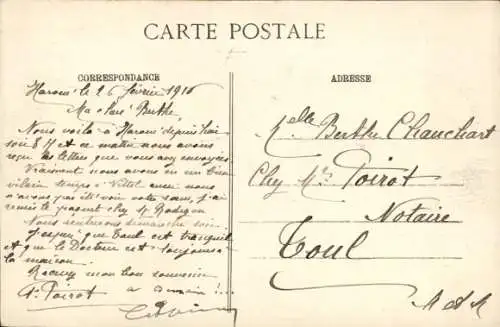 CARTE POSTALE
CORRESPONDANCE
Haroué le 26 février 1916
Ma chère Berthe
Nous voilà à Haroué depuis hier
soir 8 H et ce matin nous avons
reçu les lettres que vous avez envoyées.
Vraiment nous avons eu un bien
vilain temps à Vittel aussi nous
n'avons pas été voir votre sœur, j'ai
remis le paquet chez M Rodigon
Nous rentrerons dimanche soir
J'espère que Toul est tranquille
et que le Docteur est toujours à
la maison.
Recevez mon bon souvenir
Poirot
ADRESSE
Melle Berthe Chanchart
Chez Me Poirot
Notaire
Toul
M et M